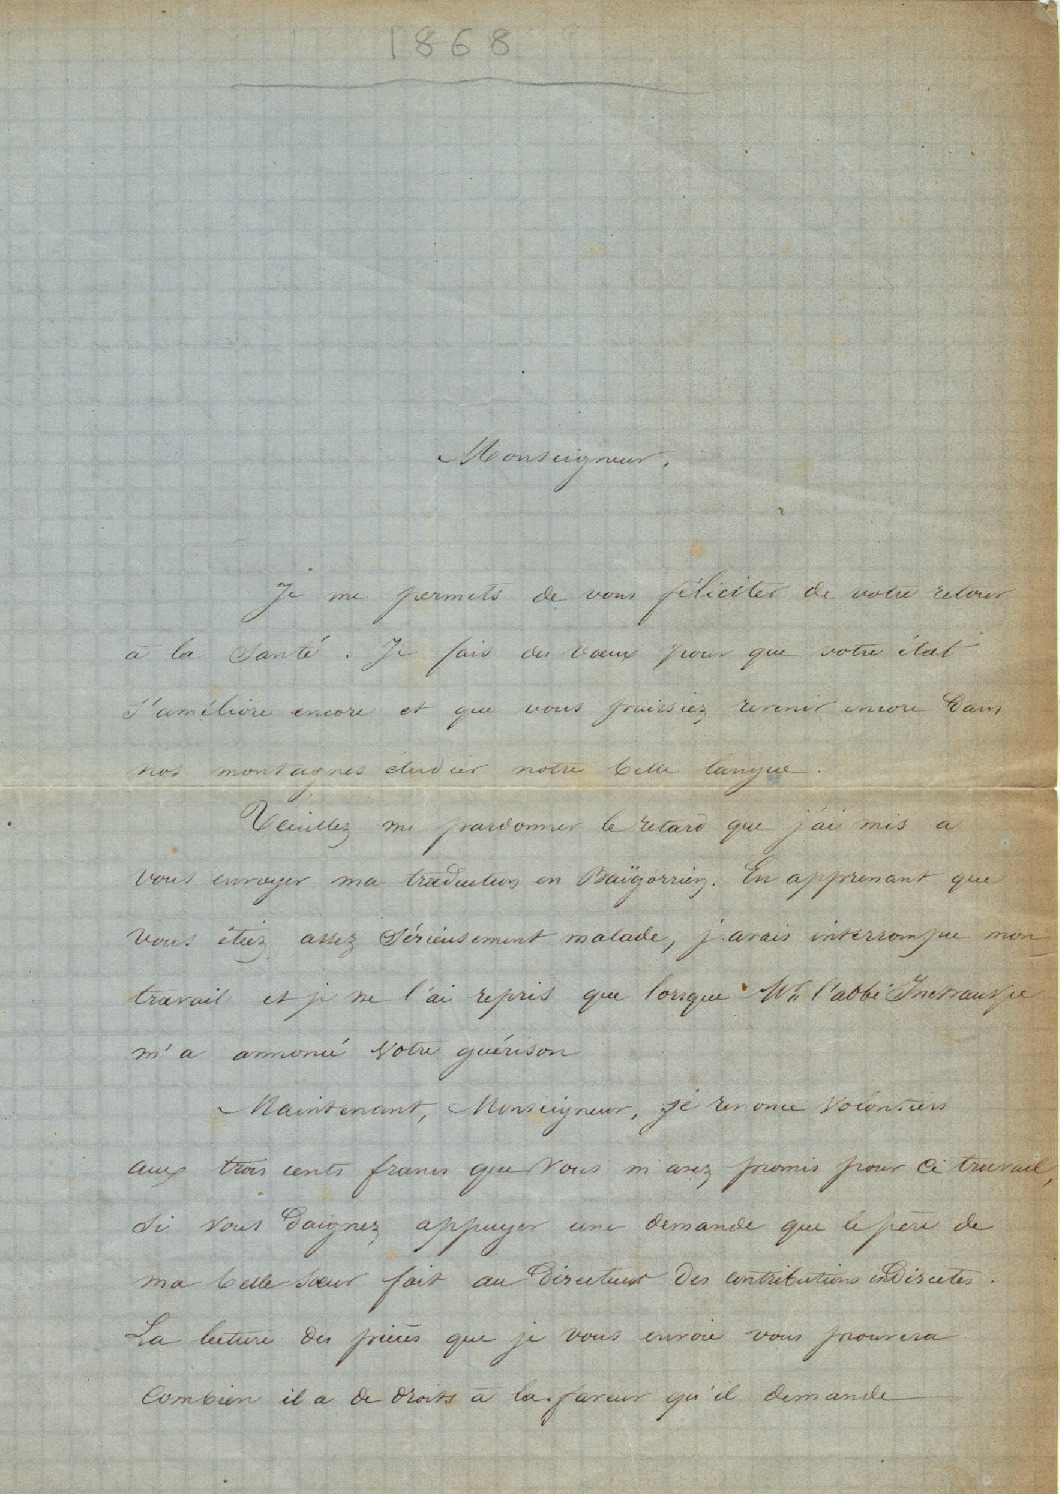 1868
Monseigneur,
Je me permets de vous féliciter de votre retour
à la santé. Je fais des vœux pour que votre état
s'améliore encore et que vous puissiez revenir encore dans
nos montagnes étudier notre belle langue.
Veuillez me pardonner le retard que j'ai mis a
vous envoyer ma traduction en Baïgorrien. En apprenant que
vous étiez assez sérieusement malade, j'avais interrompu mon
travail et je ne l'ai repris que lorsque Mr l'abbé Inchauspe
m'a annoncé votre guérison
Maintenant, Monseigneur, je renonce volontiers
aux trois cents francs que vous m'avez promis pour ce travail,
si vous daignez appuyer une demande que le père de
ma belle sœur fait au Directeur des contributions indirectes.
La lecture des pièces que je vous envoie vous prouvera
combien il a de droits à la faveur qu'il demande